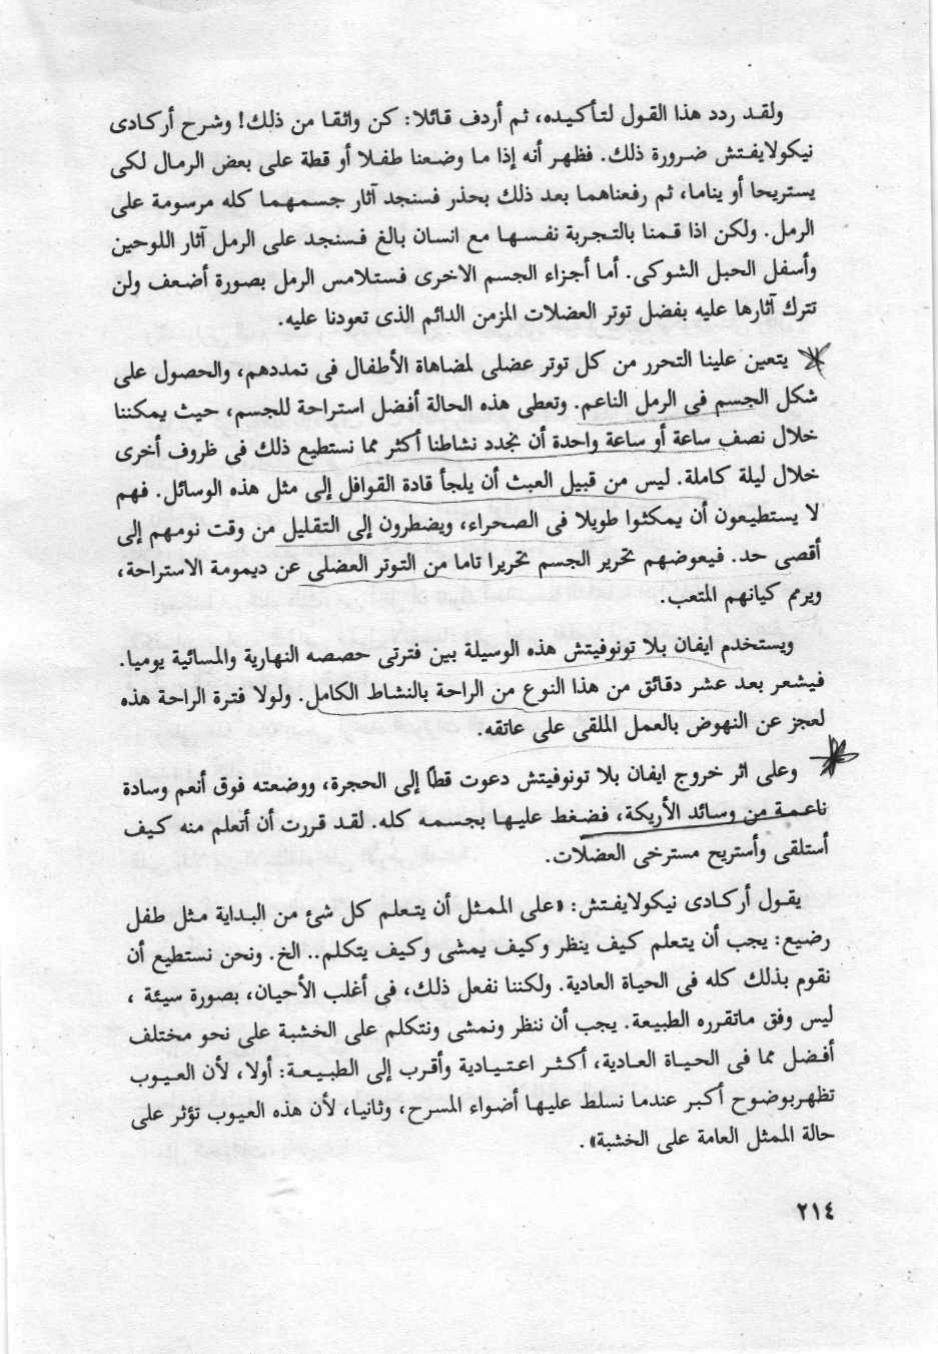 ولقد ردد هذا القول لتأكيده، ثم أردف قائلا: كن واثقا من ذلك! وشرح أركادى
نيكولايفتش ضرورة ذلك. فظهر أنه إذا ما وضعنا طفلا أو قطة على بعض الرمال لكى
يستريحا أو يناما، ثم رفعناهما بعد ذلك بحذر فسنجد آثار جسمهما كله مرسومة على
الرمل. ولكن اذا قمنا بالتجربة نفسها مع انسان بالغ فسنجد على الرمل آثار اللوحين
وأسفل الحبل الشوكى. أما أجزاء الجسم الاخرى فستلامس الرمل بصورة أضعف ولن
تترك آثارها عليه بفضل توتر العضلات المزمن الدائم الذى تعودنا عليه.
يتعين علينا التحرر من كل توتر عضلى لمضاهاة الأطفال فى تمددهم، والحصول على
شكل الجسم فى الرمل الناعم. وتعطى هذه الحالة أفضل استراحة للجسم، حيث يمكننا
خلال نصف ساعة أو ساعة واحدة أن نجدد نشاطنا أكثر مما نستطيع ذلك فى ظروف أخرى
خلال ليلة كاملة. ليس من قبيل العبث أن يلجأ قادة القوافل إلى مثل هذه الوسائل. فهم
لا يستطيعون أن يمكثوا طويلا فى الصحراء، ويضطرون إلى التقليل من وقت نومهم إلى
أقصى حد. فيعوضهم تحرير الجسم تحريرا تاما من التوتر العضلى عن ديمومة الاستراحة،
ويرمم كيانهم المتعب.
ويستخدم ايفان بلا تونوفيتش هذه الوسيلة بين فترتى حصصه النهارية والمسائية يوميا.
فيشعر بعد عشر دقائق من هذا النوع من الراحة بالنشاط الكامل. ولولا فترة الراحة هذه
لعجز عن النهوض بالعمل الملقى على عاتقه.
وعلى اثر خروج ايفان بلا تونوفيتش دعوت قطًا إلى الحجرة، ووضعته فوق أنعم وسادة
ناعمة من وسائد الأريكة، فضغط عليها بجسمه كله. لقد قررت أن أتعلم منه كيف
أستلقى وأستريح مسترخى العضلات.
يقول أركادى نيكولايفتش: «على الممثل أن يتعلم كل شئ من البداية مثل طفل
رضيع: يجب أن يتعلم كيف ينظر وكيف يمشى وكيف يتكلم.. الخ. ونحن نستطيع أن
نقوم بذلك كله فى الحياة العادية. ولكننا نفعل ذلك، فى أغلب الأحيان، بصورة سيئة ،
ليس وفق ماتقرره الطبيعة. يجب أن ننظر ونمشى ونتكلم على الخشبة على نحو مختلف
أفضل مما فى الحياة العادية، أكثر اعتيادية وأقرب إلى الطبيعة: أولا، لأن العيوب
تظهربوضوح أكبر عندما نسلط عليها أضواء المسرح، وثانيا، لأن هذه العيوب تؤثر على
حالة الممثل العامة على الخشبة» .
٢١٤